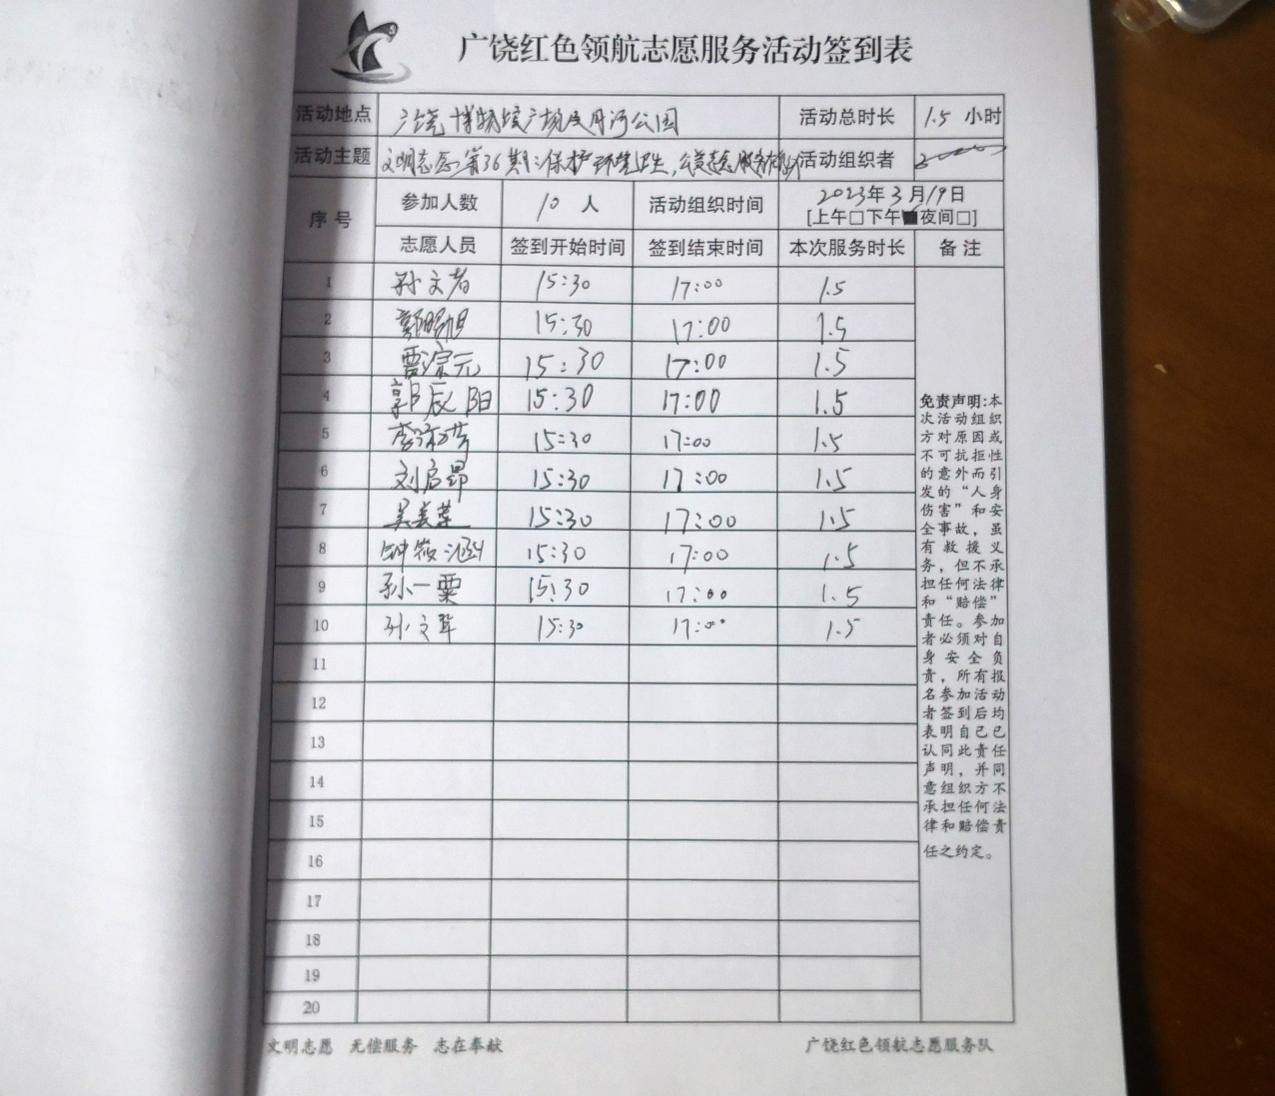 广饶红色领航志愿服务活动签到表
活动地点 广饶博物馆广场及月河公园 活动总时长 1.5 小时
活动主题 文明志愿第36期：保护环境卫生，公益志愿服务 活动组织者
序号 参加人数 10 人 活动组织时间 2023年3月19日
[上午□下午■夜间□]
志愿人员 签到开始时间 签到结束时间 本次服务时长 备注
1 孙文 15:30 17:00 1.5
2 郭 旭 15:30 17:00 1.5
3 宗元 15:30 17:00 1.5
4 郭辰阳 15:30 17:00 1.5
5 李 15:30 17:00 1.5
6 刘启昂 15:30 17:00 1.5
7 吴美 15:30 17:00 1.5
8 钟 涵 15:30 17:00 1.5
9 孙一粟 15:30 17:00 1.5
10 孙文 15:30 17:00 1.5
11
12
13
14
15
16
17
18
19
20
免责声明:本
次活动组织
方对原因或
不可抗拒性
的意外而引
发的“人身
伤害”和安
全事故，虽
有救援义
务，但不承
担任何法律
和“赔偿”
责任。参加
者必须对自
身安全负
责，所有报
名参加活动
者签到后均
表明自己已
认同此责任
声明，并同
意组织方不
承担任何法
律和赔偿责
任之约定。
文明志愿 无偿服务 志在奉献 广饶红色领航志愿服务队